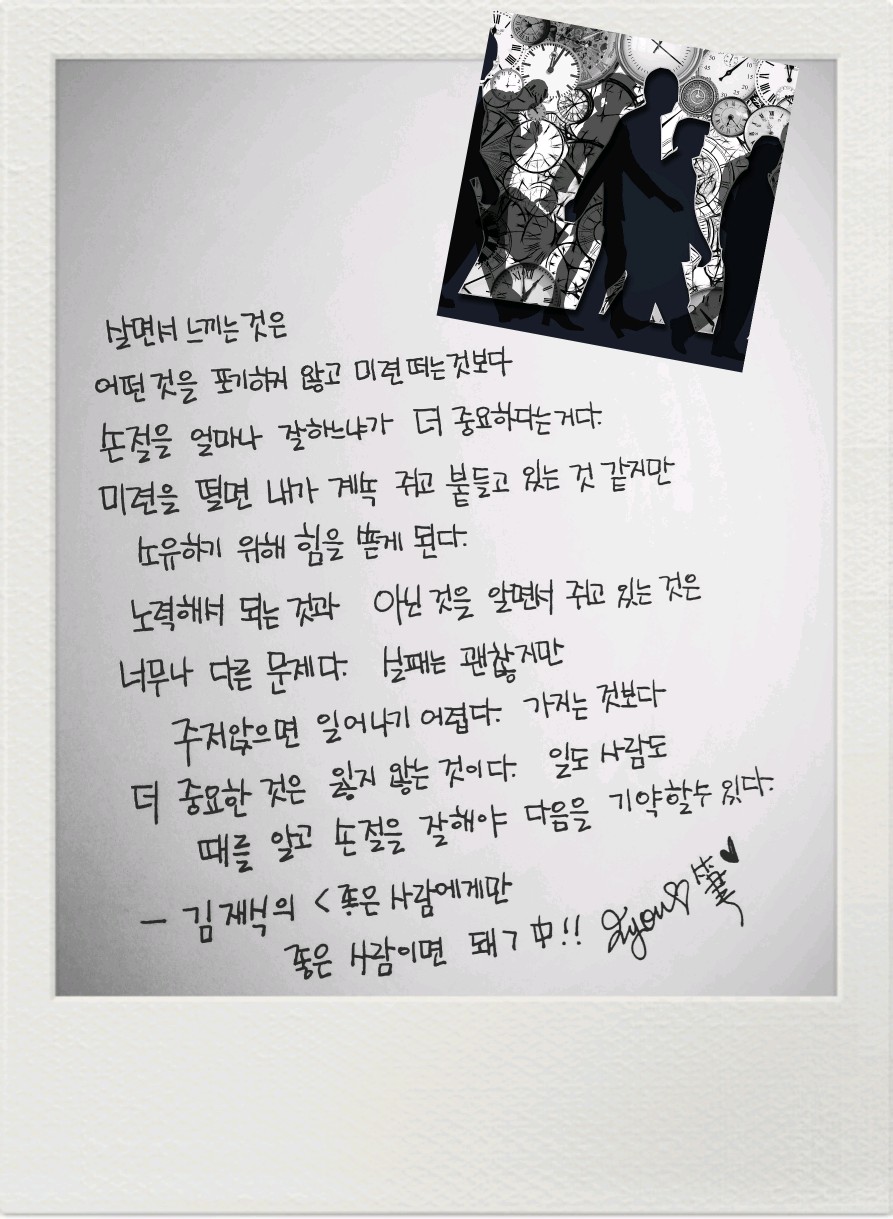 살면서 느끼는 것은
어떤 것을 포기하지 않고 미련 떠는 것보다
손절을 얼마나 잘하느냐가 더 중요하다는 거다.
미련을 떨면 내가 계속 쥐고 붙들고 있는 것 같지만
소유하기 위해 힘을 뺃게 된다.
노력해서 되는 것과 아닌 것을 알면서 쥐고 있는 것은
너무나 다른 문제다. 설때는 괜찮지만
주저앉으면 일어나기 어렵다. 가지는 것보다
더 중요한 것은 잃지 않는 것이다. 일도 사람도
때를 알고 손절을 잘해야 다음을 기약할수 있다.
- 김재식의 <좋은 사람에게만
좋은 사람이면 돼 7 中!!
Lyou 筆